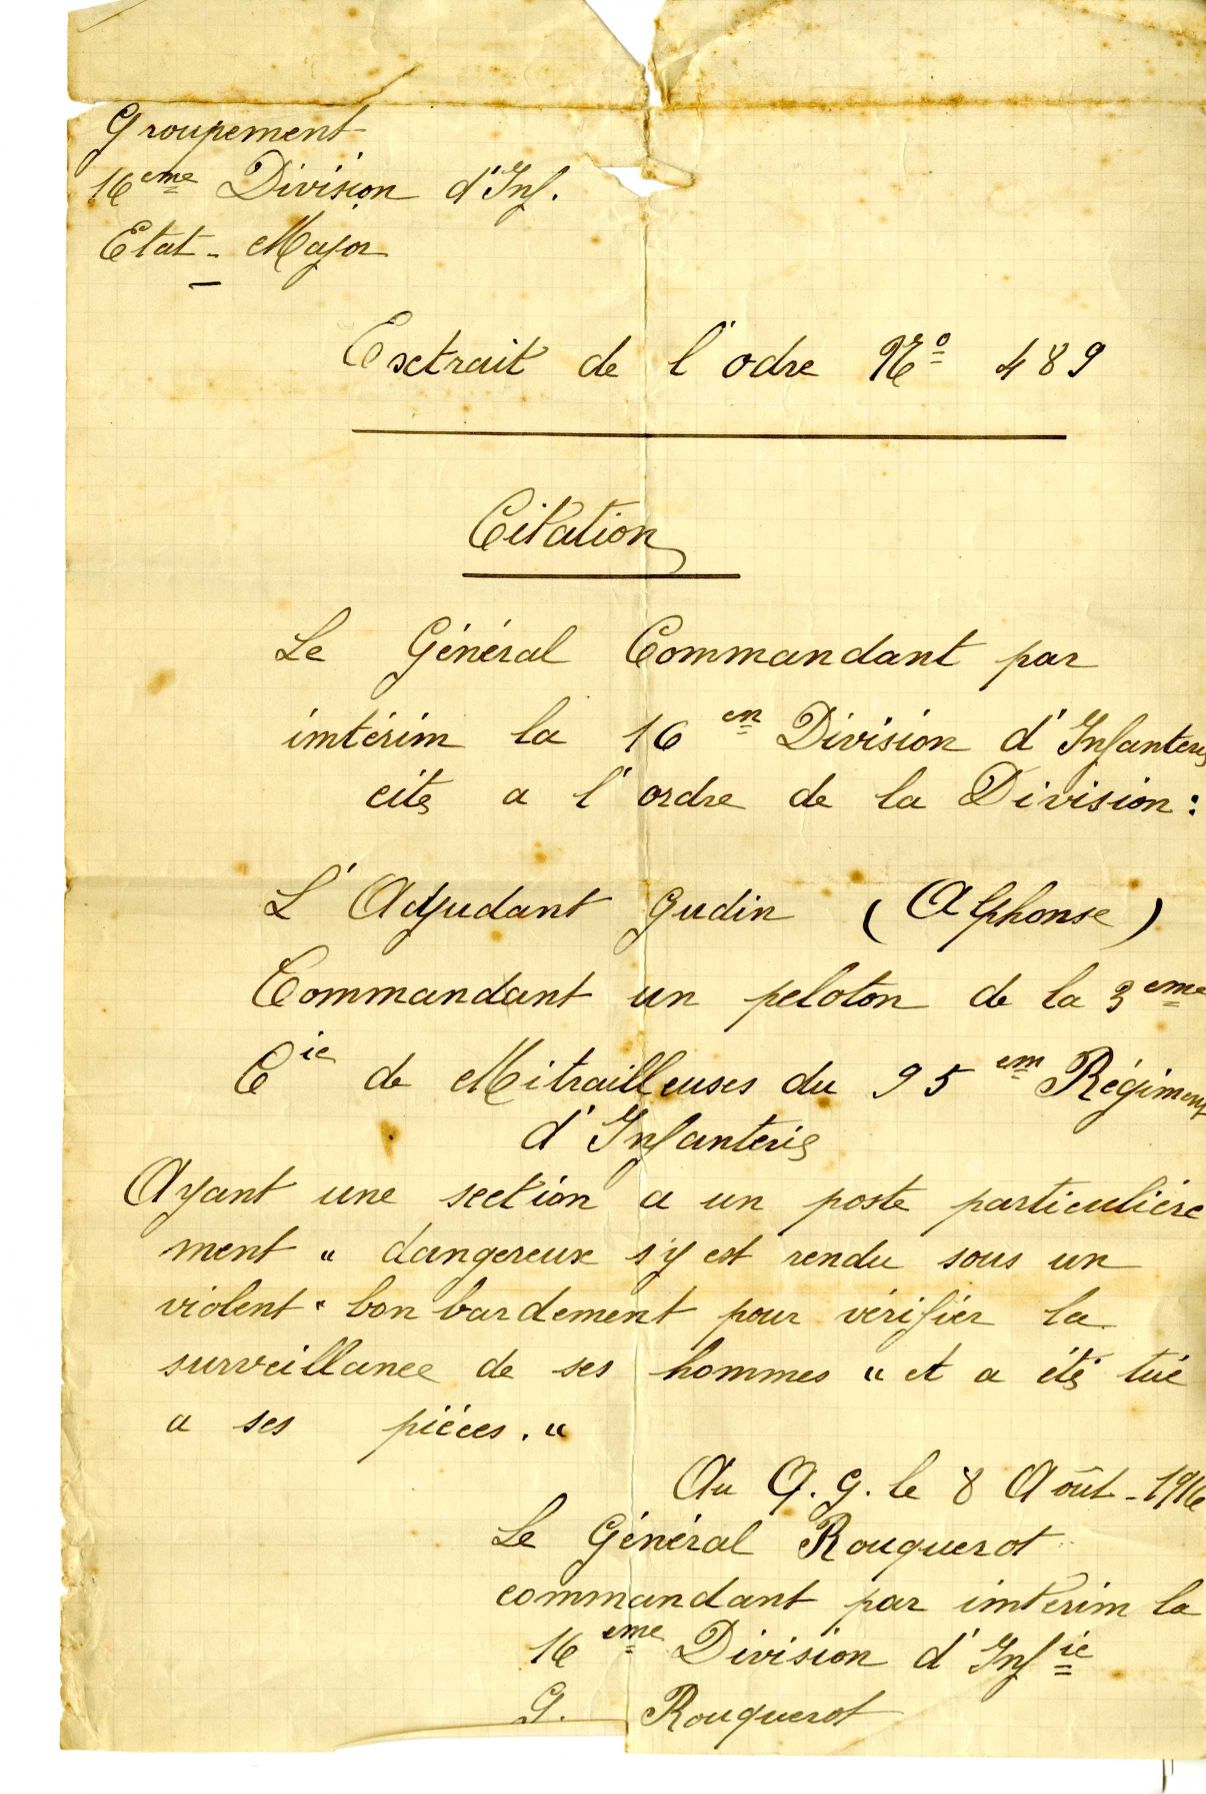 Groupement
16eme Division d'Inf.
Etat-Major
Extrait de l'odre No 489
Citation
Le Général Commandant par
intérim la 16 em Division d'Infanterie
cite a l'ordre de la Division :
L'Adjudant Gudin (Alphonse)
Commandant un peloton de la 3eme
Cie de Mitrailleuses du 95 em Régiment
d'Infanterie
Ayant une section a un poste particulière
ment " dangereux s'y est rendu sous un
violent " bonbardement pour vérifier la
surveillance de ses hommes " et a été tué
a ses piéces. "
Au Q. G. le 8 Août - 1916
Le Général Rouquerot
commandant par intérim la
16 eme Division d'Infie
G. Rouquerot